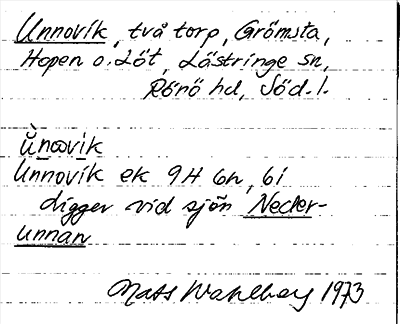 Unnovik, två torp, Grömsta,
Hopen o. Löt, Lästringe sn,
Rönö hd, Söd. l.
Unnovik ek 9H 6h, 6i
ligger vid sjön Necker-
unnan
Mats Wahlberg 1973